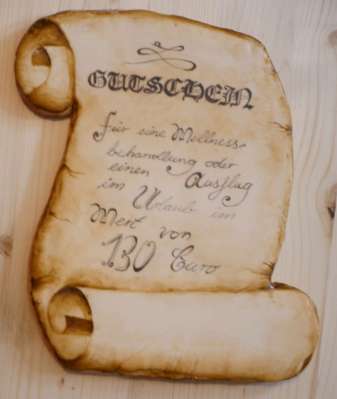 GUTSCHEIN
Für eine Wellness-
behandlung oder
einen Ausflug
im Urlaub im
Wert von
130 Euro